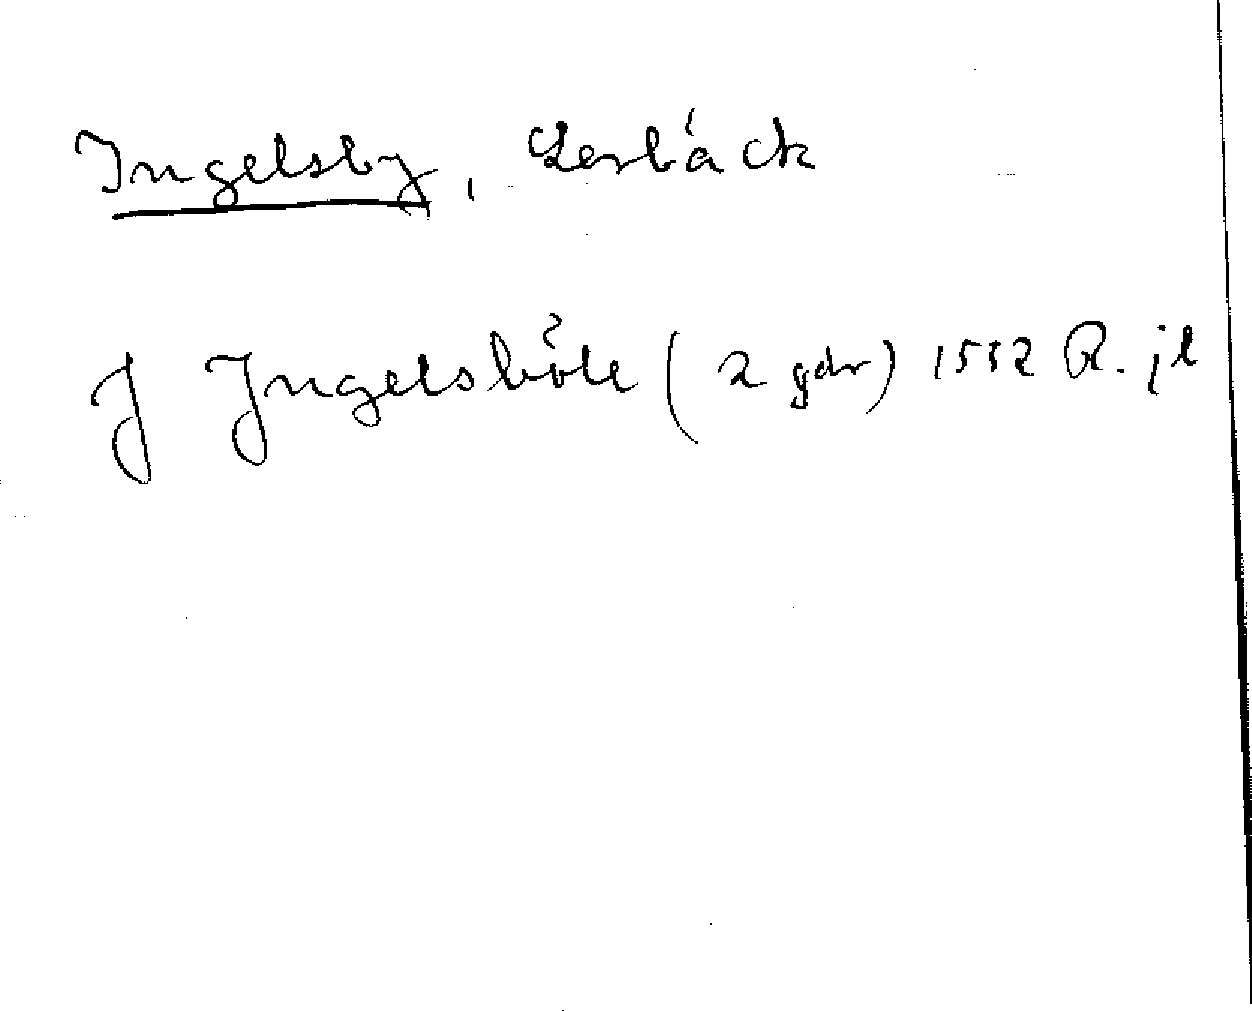 Ingelsby, Lerbäck
J Ingelsböle (2 gdr) 1552 R. jl